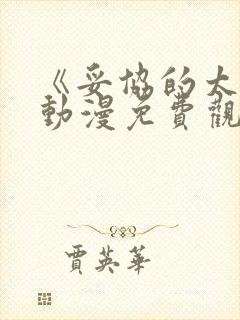 《妥協的太
動漫免費觀
賈英華